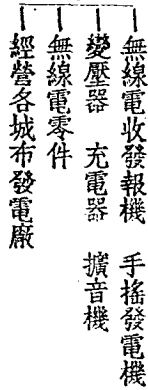 無線電收發報機　手搖發電機
變壓器　充電器　擴音機
無線電零件
經營各城布發電廠